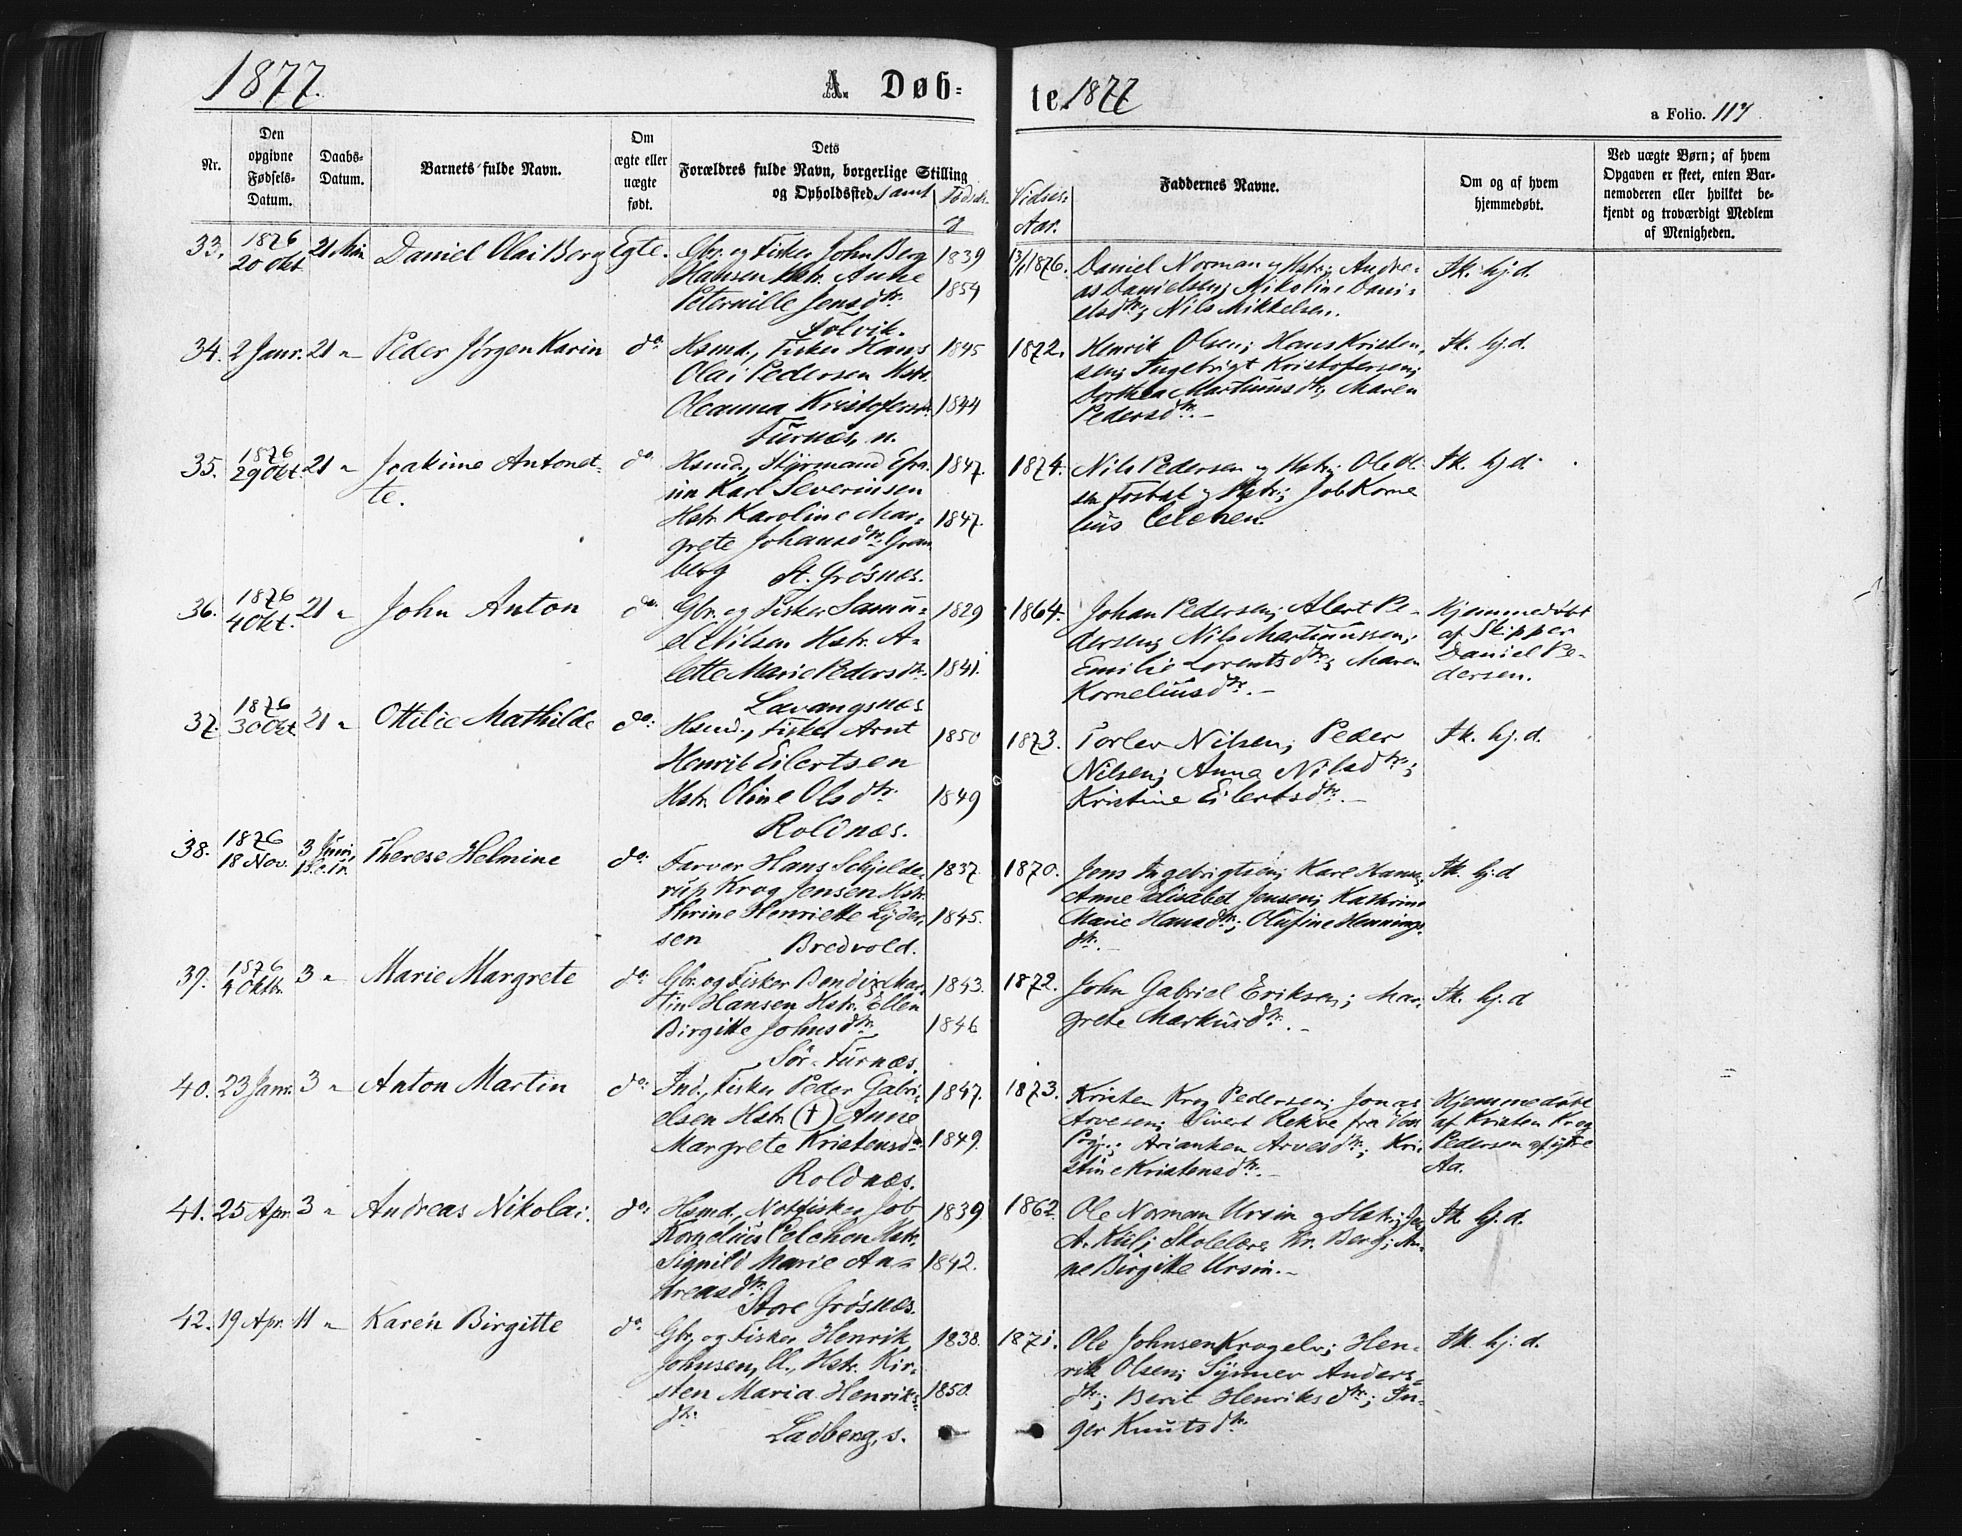 1877. A. Døb= te. 1877
a Folio. 117
Nr.
Den opgivne Fødsels-Datum.
Daabs-Datum.
Barnets fulde Navn.
Om ægte eller uægte født.
Dets Forældres fulde Navn, borgerlige Stilling og Opholdssted samt Fødsels-
Vielses-Aar.
Faddernes Navne.
Om og af hvem hjemmedøbt.
Ved uægte Børn; af hvem
Opgaven er skeet, enten Bar-
nemoderen eller hvilket be-
kjendt og troværdigt Medlem
af Menigheden.
33. 1876 20 Okt 21 Mai Daniel Olai Berg Egte. Gbr. og Fisker John Berg 1839
Hansen Hstr. Anne
Peternille Jensdtr. 1854
Solvik.
13/1 1876. Daniel Norman og Hstr; Andre-
as Danielsen; Nikoline Dani-
elsdtr; Nils Mikkelsen.
Ik. hj. d.
34. 2 Janr. 21 " Peder Jørgen Karin do Hsmd., Fisker Hans 1845
Olai Pedersen Hstr.
Oleanna Kristofersdr. 1844
Furnes, n.
1872. Henrik Olsen; Hans Kristen-
sen; Ingebrigt Kristofersen;
Dorthea Martinusdtr; Maren
Pedersdtr. —
Ik. hj. d.
35. 1876 29 Okt. 21 " Joakime Antonet-
te.
do Hsmd., Styrmand Efra- 1847.
im Karl Severinsen
Hstr. Karoline Mar- 1847.
grete Johansdtr. Gran
berg St. Grøsnes.
1874. Nils Pedersen og Hstr; Ole Ol-
sen Fosbak og Hstr; Job Korne
lius Celchen.
Ik. hj. d.
36. 1876 4 Okt. 21 " John Anton do. Gbr. og Fisker Samu- 1829
el Nilsen Hstr. A-
lette Marie Pedersdtr. 1841.
Lavangsnes
1864. Johan Pedersen; Alert Pe-
dersen; Nils Martinussen;
Emilie Lorentsdtr; Maren
Korneliusdtr. —
Hjemmedøbt
af Skipper
Daniel Pe-
dersen.
37. 1876 30 Okt 21 " Ottilie Mathilde do: Hsmd., Fisker Arnt 1850
Henrik Eilertsen
Hstr. Oline Olsdtr. 1849
Roldnæs.
1873. Torlev Nilsen; Peder
Nilsen; Anna Nilsdtr;
Kristine Eilertsdtr. —
Ik. hj. d.
38. 1876 18 Nov. 3 Juni Therese Helmine do: Farver Hans Schjelde- 1837.
rup Krog Jensen Hstr.
Thrine Henriette Lyder- 1845.
sen Bredvold.
1870. Jens Ingebrigtsen; Karl Hanse;
Anne Elisabet Jensen; Kathrine
Marie Hansdtr; Olufine Hennings-
dtr. —
Ik. hj. d
39. 1876 4 Oktbr. 3 " Marie Margrete do: Gbr. og Fisker Bendix Mar- 1843.
tin Hansen Hstr. Ellen
Birgitte Johnsdtr. 1846
Sør-Furnæs.
1872. John Gabriel Eriksen; Mar-
grete Markusdtr. —
Ik. hj. d
40. 23 Janr. 3 " Anton Martin do: Ind., Fisker Peder Gabri- 1847.
elsen Hstr. (†) Anne
Margrete Kristensdr 1849.
Roldnæs.
1873. Kristen Krog Pedersen; Jonas
Arvesen; Sivert Rekve fra Vos
Pgj.; Arianken Arvesdtr; Kri-
stine Kristensdtr. —
Hjemmedøbt
af Kristen Krog
Pedersen af ytre
Aa.
41. 25 Apr. 3 " Andreas Nikolai. do: Hsmd., Notfisker Job 1839
Kornelius Celchen Hstr.
Signild Marie An- 1842.
dreasdtr.
Store Grøsnæs.
1862. Ole Norman Ursin og Hstr;
A. Kiil; Skolelærer Kr. Berg; An-
ne Birgitte Ursin. —
Ik hj. d.
42. 19 Apr. 11 " Karen Birgitte do Gbr. og Fisker Henrik 1838.
Johnsen, Hstr. Kir-
sten Maria Henriks- 1850.
dtr.
Ladberg, s.
1871. Ole Johnsen Krogelv; Hen-
rik Olsen; Synnev Anders-
dtr; Berit Henriksdtr; In-
ger Knutsdtr.
Ik. hj. d.